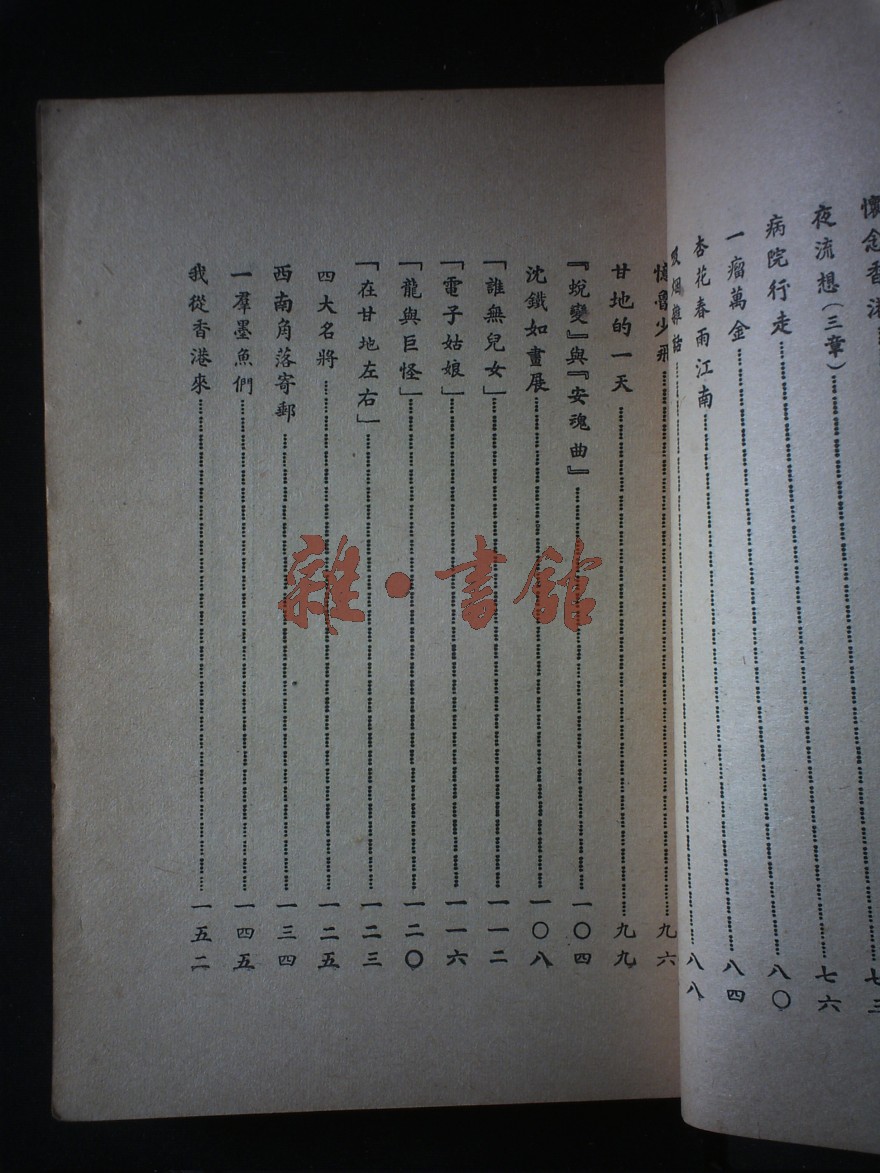 懷念香港……七三
夜流想（三章）……七六
病院行走……八〇
一瘤萬金……八四
杏花春雨江南……八八
憶魯少飛……九六
甘地的一天……九九
『蛻變』與『安魂曲』……一〇四
沈鐵如畫展……一〇八
「誰無兒女」……一一二
「電子姑娘」……一一六
「龍與巨怪」……一二〇
「在甘地左右」……一二三
四大名將……一二五
西南角落寄郵……一三四
一羣墨魚們……一四五
我從香港來……一五二
雜·書館